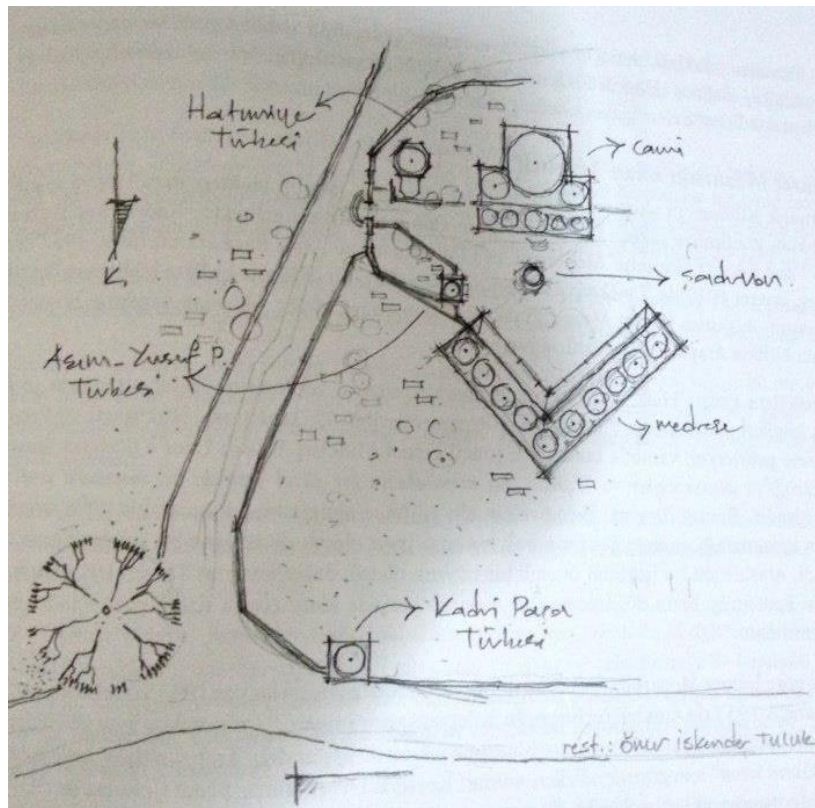 Hatuniye
Türbesi
cami
şadırvan
Asım-Yusuf P.
Türbesi
medrese
Kadri Paşa
Türbesi
rest.: Öner iskender Tuluk
K